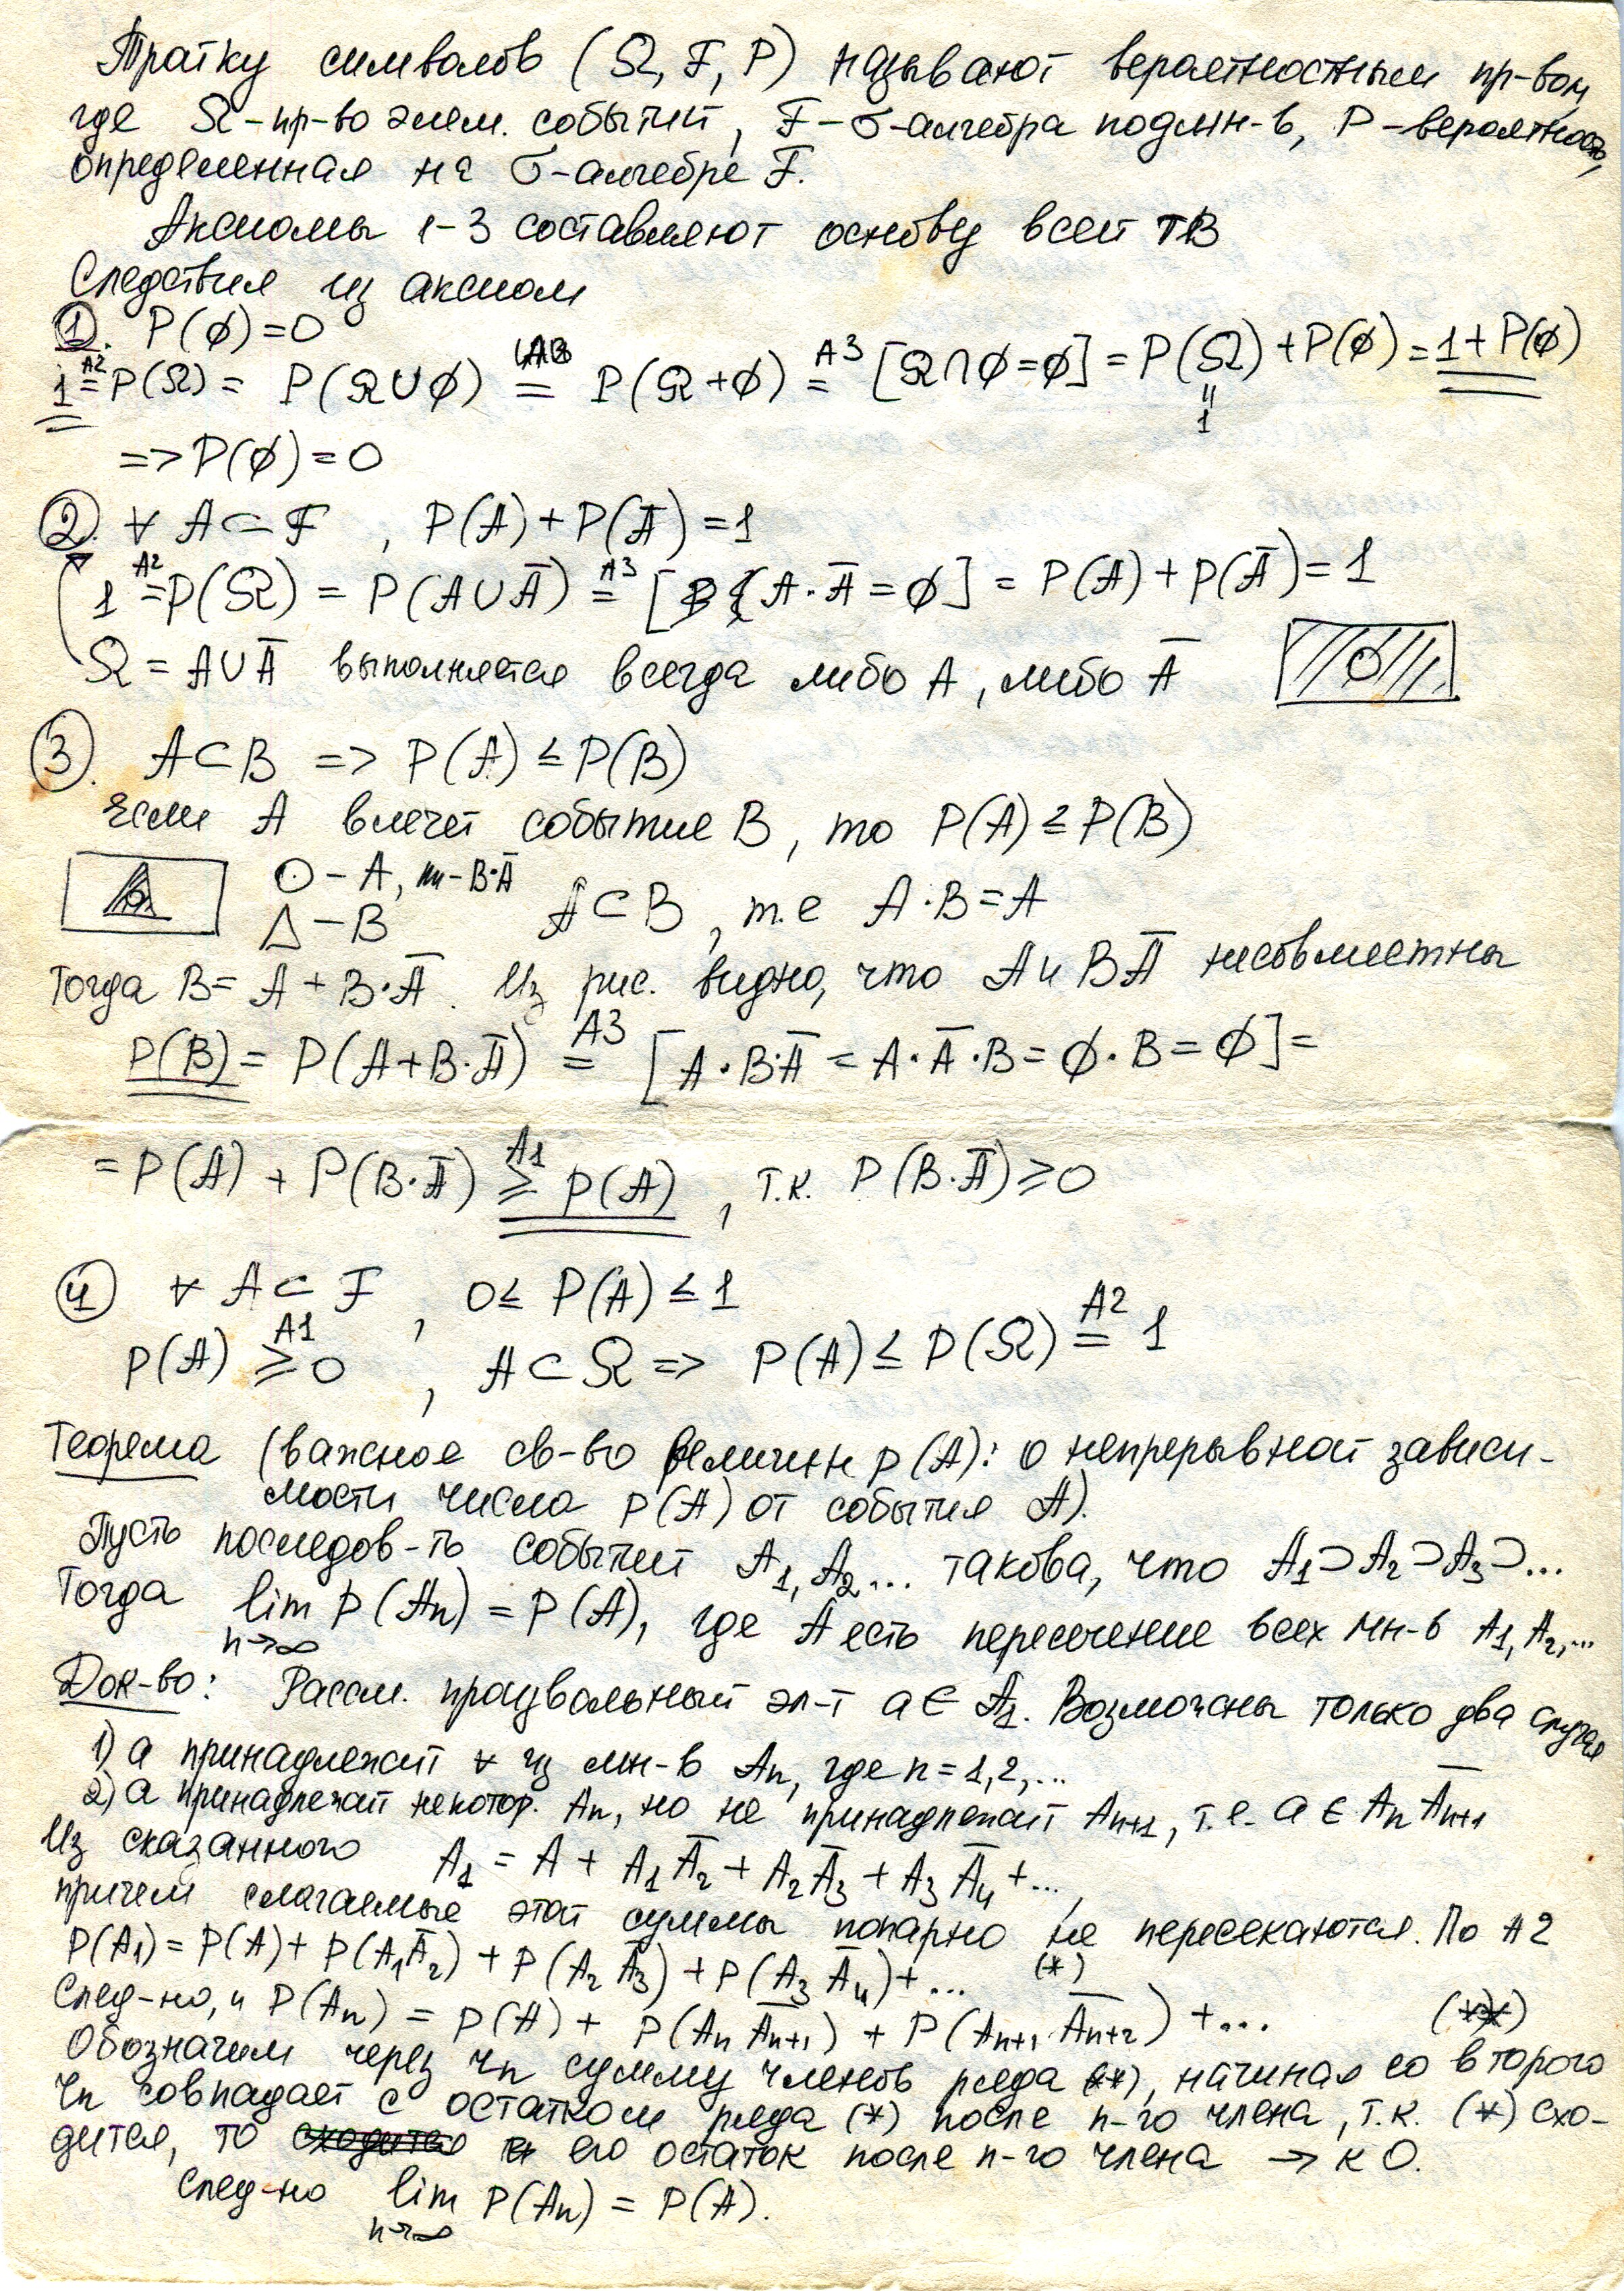 Тройку символов (Ω, F, P) называют вероятностным пр-вом,
где Ω-пр-во элем. событий, F-σ-алгебра подмн-в, P-вероятность,
определенная на σ-алгебре F.
Аксиомы 1-3 составляют основу всей ТВ
Следствия из аксиом
①. P(∅)=0
1 =(A2) P(Ω) = P(Ω∪∅) = P(Ω+∅) =(A3) [Ω∩∅=∅] = P(Ω)+P(∅) = 1+P(∅)
"
1
=> P(∅)=0
②. ∀ A⊂F, P(A)+P(Ā)=1
1 =(A2) P(Ω) = P(A∪Ā) =(A3) [A·Ā=∅] = P(A)+P(Ā)=1
Ω = A∪Ā выполняется всегда либо A, либо Ā
③. A⊂B => P(A)≤P(B)
если A влечет событие B, то P(A)≤P(B)
○-A, \\\\-B·Ā
△-B A⊂B, т.е A·B=A
Тогда B=A+B·Ā. Из рис. видно, что A и BĀ несовместны
P(B) = P(A+B·Ā) =(A3) [A·B·Ā = A·Ā·B = ∅·B = ∅] =
= P(A) + P(B·Ā) ≥(A1) P(A), т.к. P(B·Ā)≥0
④ ∀ A⊂F, 0≤P(A)≤1
P(A) ≥(A1) 0, A⊂Ω => P(A)≤P(Ω) =(A2) 1
Теорема (важное св-во величин P(A): о непрерывной зависи-
мости числа P(A) от события A).
Пусть последов-ть событий A₁, A₂... такова, что A₁⊃A₂⊃A₃⊃...
Тогда lim P(Aₙ) = P(A), где A есть пересечение всех мн-в A₁, A₂,...
n→∞
Док-во: Рассм. произвольный эл-т a∈A₁. Возможны только два случая
1) a принадлежит ∀ из мн-в Aₙ, где n=1,2,...
2) a принадлежит некотор. Aₙ, но не принадлежит Aₙ₊₁, т.е. a∈Aₙ A̅ₙ₊₁
Из сказанного A₁ = A + A₁Ā₂ + A₂Ā₃ + A₃Ā₄ +...,
причем слагаемые этой суммы попарно не пересекаются. По A2
P(A₁) = P(A) + P(A₁Ā₂) + P(A₂Ā₃) + P(A₃Ā₄) +... (*)
След-но, и P(Aₙ) = P(A) + P(Aₙ A̅ₙ₊₁) + P(Aₙ₊₁ A̅ₙ₊₂) +... (**)
Обозначим через rₙ сумму членов ряда (**), начиная со второго
rₙ совпадает с остатком ряда (*) после n-го члена, т.к. (*) схо-
дится, то его остаток после n-го члена → к 0.
След-но lim P(Aₙ) = P(A).
n→∞